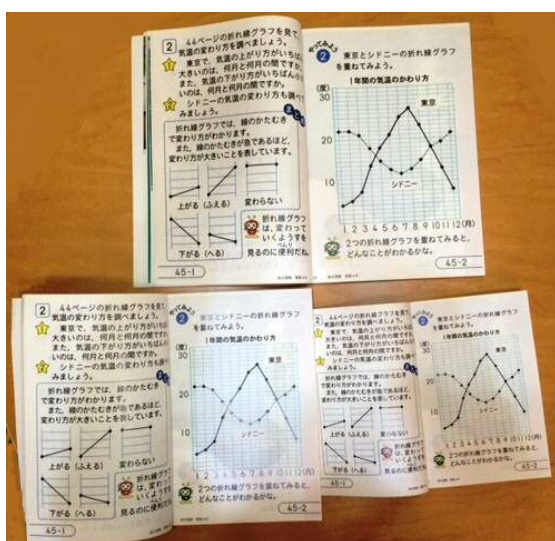 2
44ページの折れ線グラフを見て、
気温の変わり方を調べましょう。
1
東京で、気温の上がり方がいちばん
大きいのは、何月と何月の間ですか。
また、気温の下がり方がいちばん大き
いのは、何月と何月の間ですか。
2
シドニーの気温の変わり方も調べて
みましょう。
まとめ
折れ線グラフでは、線のかたむき
で変わり方がわかります。
また、線のかたむきが急であるほど、
変わり方が大きいことを表しています。
上がる(ふえる)
変わらない
下がる(へる)
折れ線グラフ
は、変わって
いくようすを
べんり
見るのに便利だね。
45-1
やってみよう
2
東京とシドニーの折れ線グラフ
を重ねてみよう。
1年間の気温のかわり方
(度)
30
20
10
東京
シドニー
1 2 3 4 5 6 7 8 9 10 11 12(月)
2つの折れ線グラフを重ねてみると、
どんなことがわかるかな。
45-2
2
44ページの折れ線グラフを見て、
気温の変わり方を調べましょう。
1
東京で、気温の上がり方がいちばん
大きいのは、何月と何月の間ですか
また、気温の下がり方がいちばん
いのは、何月と何月の間ですか。
2
シドニーの気温の変わり方も調べ
みましょう。
折れ線グラフでは、線のかたむき
で変わり方がわかります。
また、線のかたむきが急であるほど、
変わり方が大きいことを表しています。
上がる(ふえる)
変わらない
下がる(へる)
折れ線グラフ
は、変わって
いくようすを
見るのに便利だ
45-1
やってみよう
2
東京とシドニーの折れ線グラフ
を重ねてみよう。
1年間の気温のかわり方
(度)
30
20
10
東京
シドニー
1 2 3 4 5 6 7 8 9 10 11 12(月)
2つの折れ線グラフを重ねてみると、
どんなことがわかるかな。
45-2
2
44ページの折れ線グラフを見て
気温の変わり方を調べましょう。
1
東京で、気温の上がり方がいちばん
大きいのは、何月と何月の間ですか
また、気温の下がり方がいちばん
いのは、何月と何月の間ですか。
2
シドニーの気温の変わり方も調べ
みましょう。
折れ線グラフでは、線のかたむき
で変わり方がわかります。
また、線のかたむきが急であるほど、
変わり方が大きいことを表しています。
上がる(ふえる)
変わらない
下がる(へる)
折れ線グラフ
は、変わって
いくようすを
見るのに便利
45-1
やってみよう
2
東京とシドニーの折れ線グラフ
を重ねてみよう。
1年間の気温のかわり方
(度)
30
20
10
東京
シドニー
1 2 3 4 5 6 7 8 9 10 11 12(月)
2つの折れ線グラフを重ねてみると、
どんなことがわかるかな。
45-2